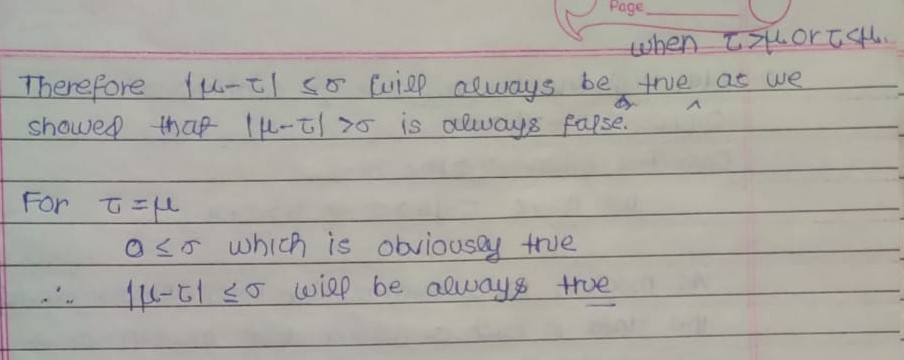 Page
when τ>μ or τ<μ.
Therefore |μ-τ| ≤σ will always be true ^ as we
showed that |μ-τ| >σ is always false.
For τ=μ
0≤σ which is obviously true
∴ |μ-τ| ≤σ will be always true